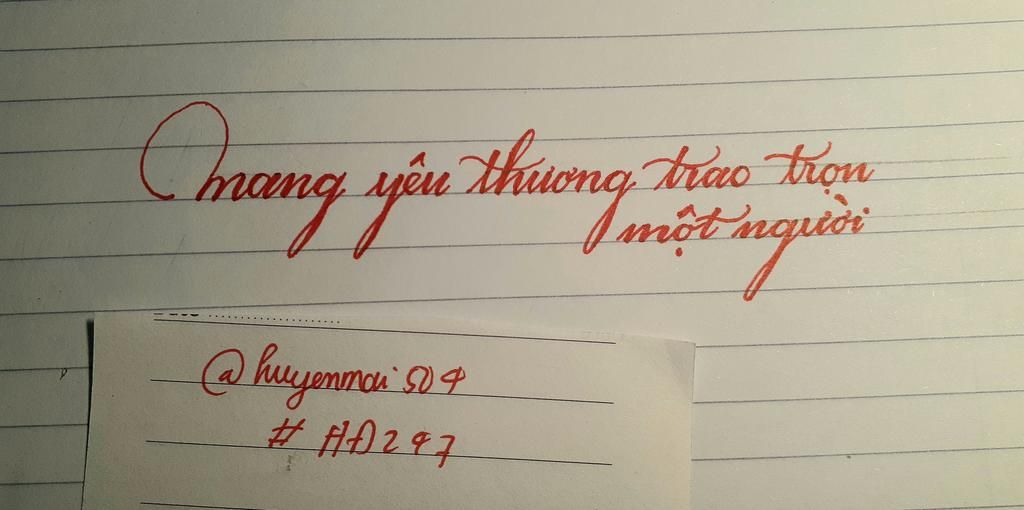 Mang yêu thương trao trọn
một người
@huyenmai504
#HĐ297